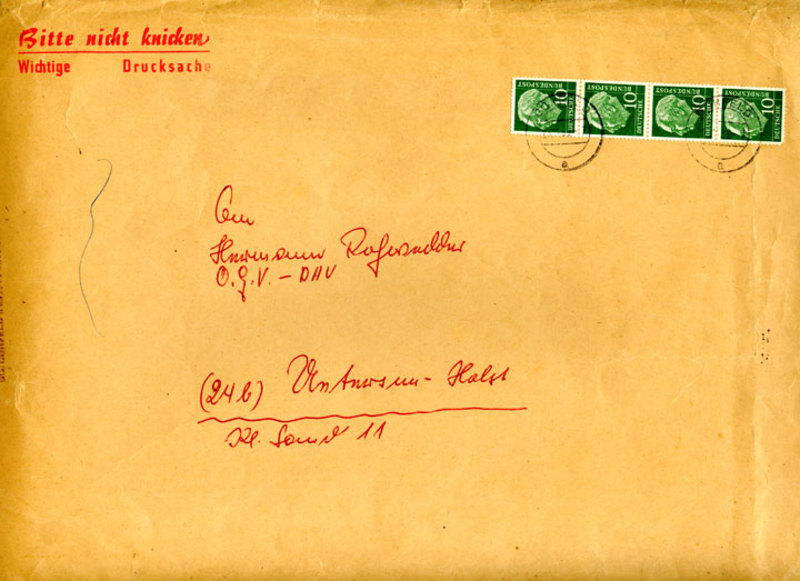 Bitte nicht knicken
Wichtige Drucksache
10 DEUTSCHE BUNDESPOST
10 DEUTSCHE BUNDESPOST
10 DEUTSCHE BUNDESPOST
10 DEUTSCHE BUNDESPOST
a
a
Hermann
O.G.V. – DAV
(24b) Holst
Kl. Sand 11